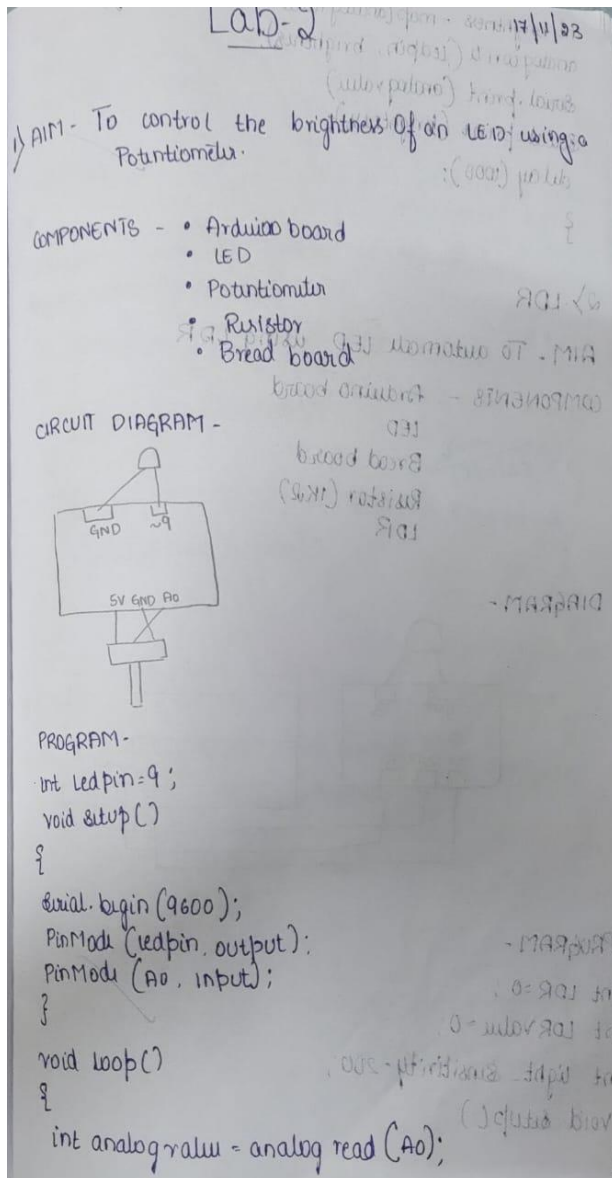 Lab-2
17/11/23
1) AIM - To control the brightness of an LED, using a
Potentiometer.
COMPONENTS - • Arduino board
• LED
• Potentiometer
• Resistor
• Bread board
CIRCUIT DIAGRAM -
GND ~9
5V GND A0
PROGRAM -
int ledpin = 9;
void setup()
{
serial.begin (9600);
PinMode (ledpin, output);
PinMode (A0, input);
}
void loop()
{
int analogvalue = analog read (A0);